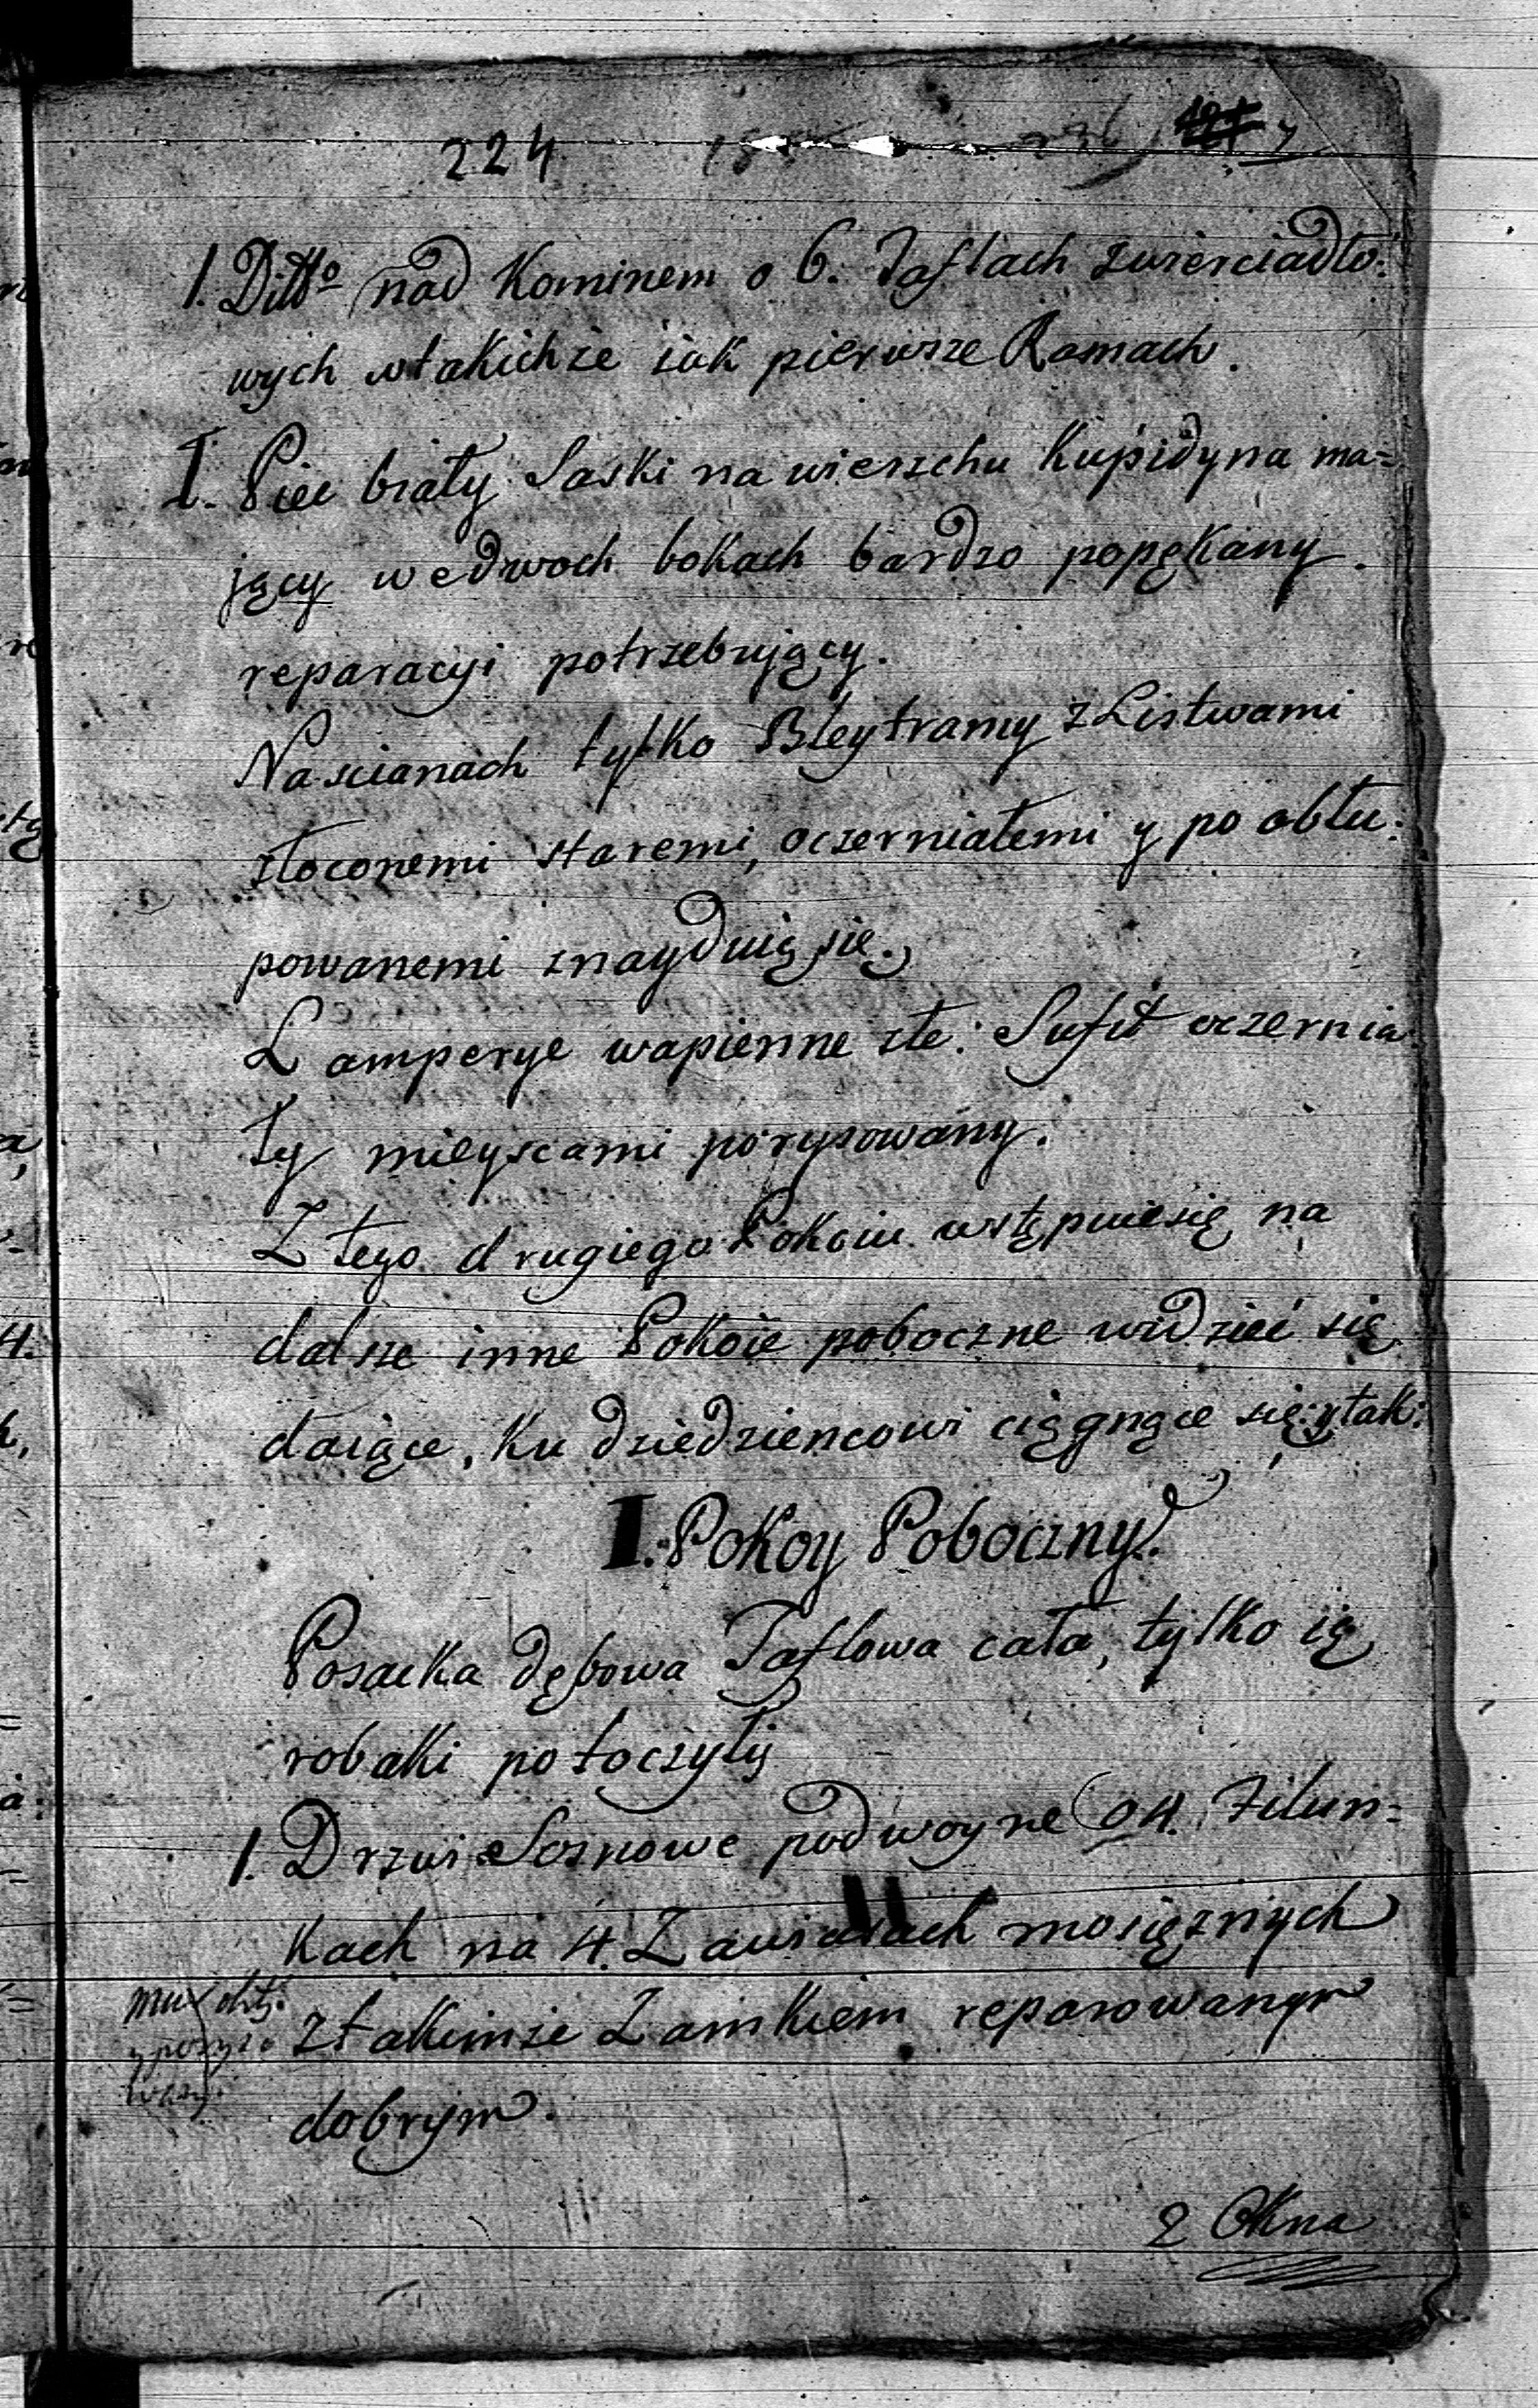 224
1. Ditto nad Kominem o 6. Taflach zwierciadło:
wych w takichże iak pierwsze Ramach.
1. Piec biały Saski na wierzchu Kupidyna ma=
jący we dwoch bokach bardzo popękany.
reparacyi potrzebujący.
Na scianach tylko Bleytramy z Listwami
złoconemi staremi, oczerniałemi y po obłu:
powanemi znayduią się.
Lamperye wapienne złe: Sufit oczernia
ły mieyscami porysowany.
Z tego drugiego Pokoiu wstępuie się na
dalsze inne Pokoie poboczne widzieć się
daiące, ku dziedzieńcowi ciągnące się: y tak:
I. Pokoy Poboczny.
Posacka dębowa Taflowa cała, tylko ią
robaki potoczyły
1. Drzwi Sosnowe podwoyne o 4. Filun=
kach na 4. Zawiasach mosiężnych
z takimże Zamkiem reparowanym
dobrym.
2 Okna